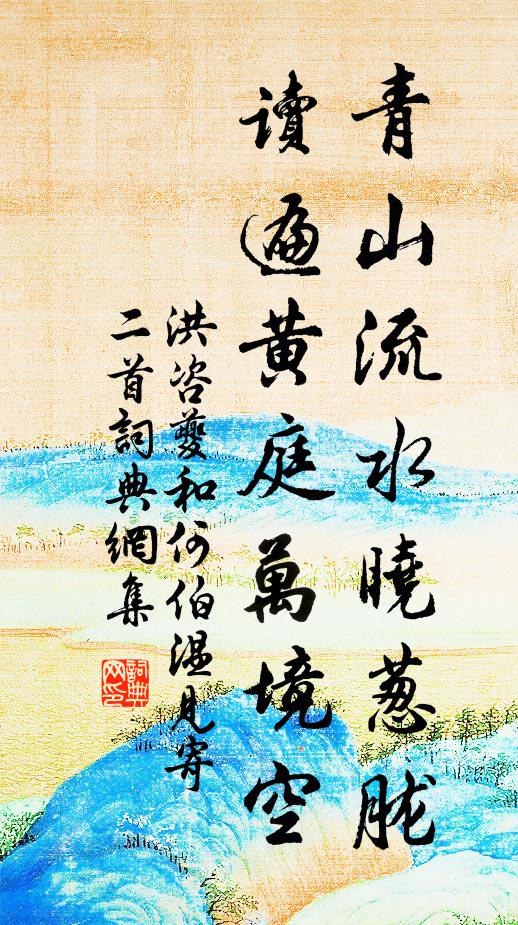 青山流水曉蔥朧
讀遍黃庭萬境空
洪咨夔和何伯溫見寄
二首詞典網集
詞典網印